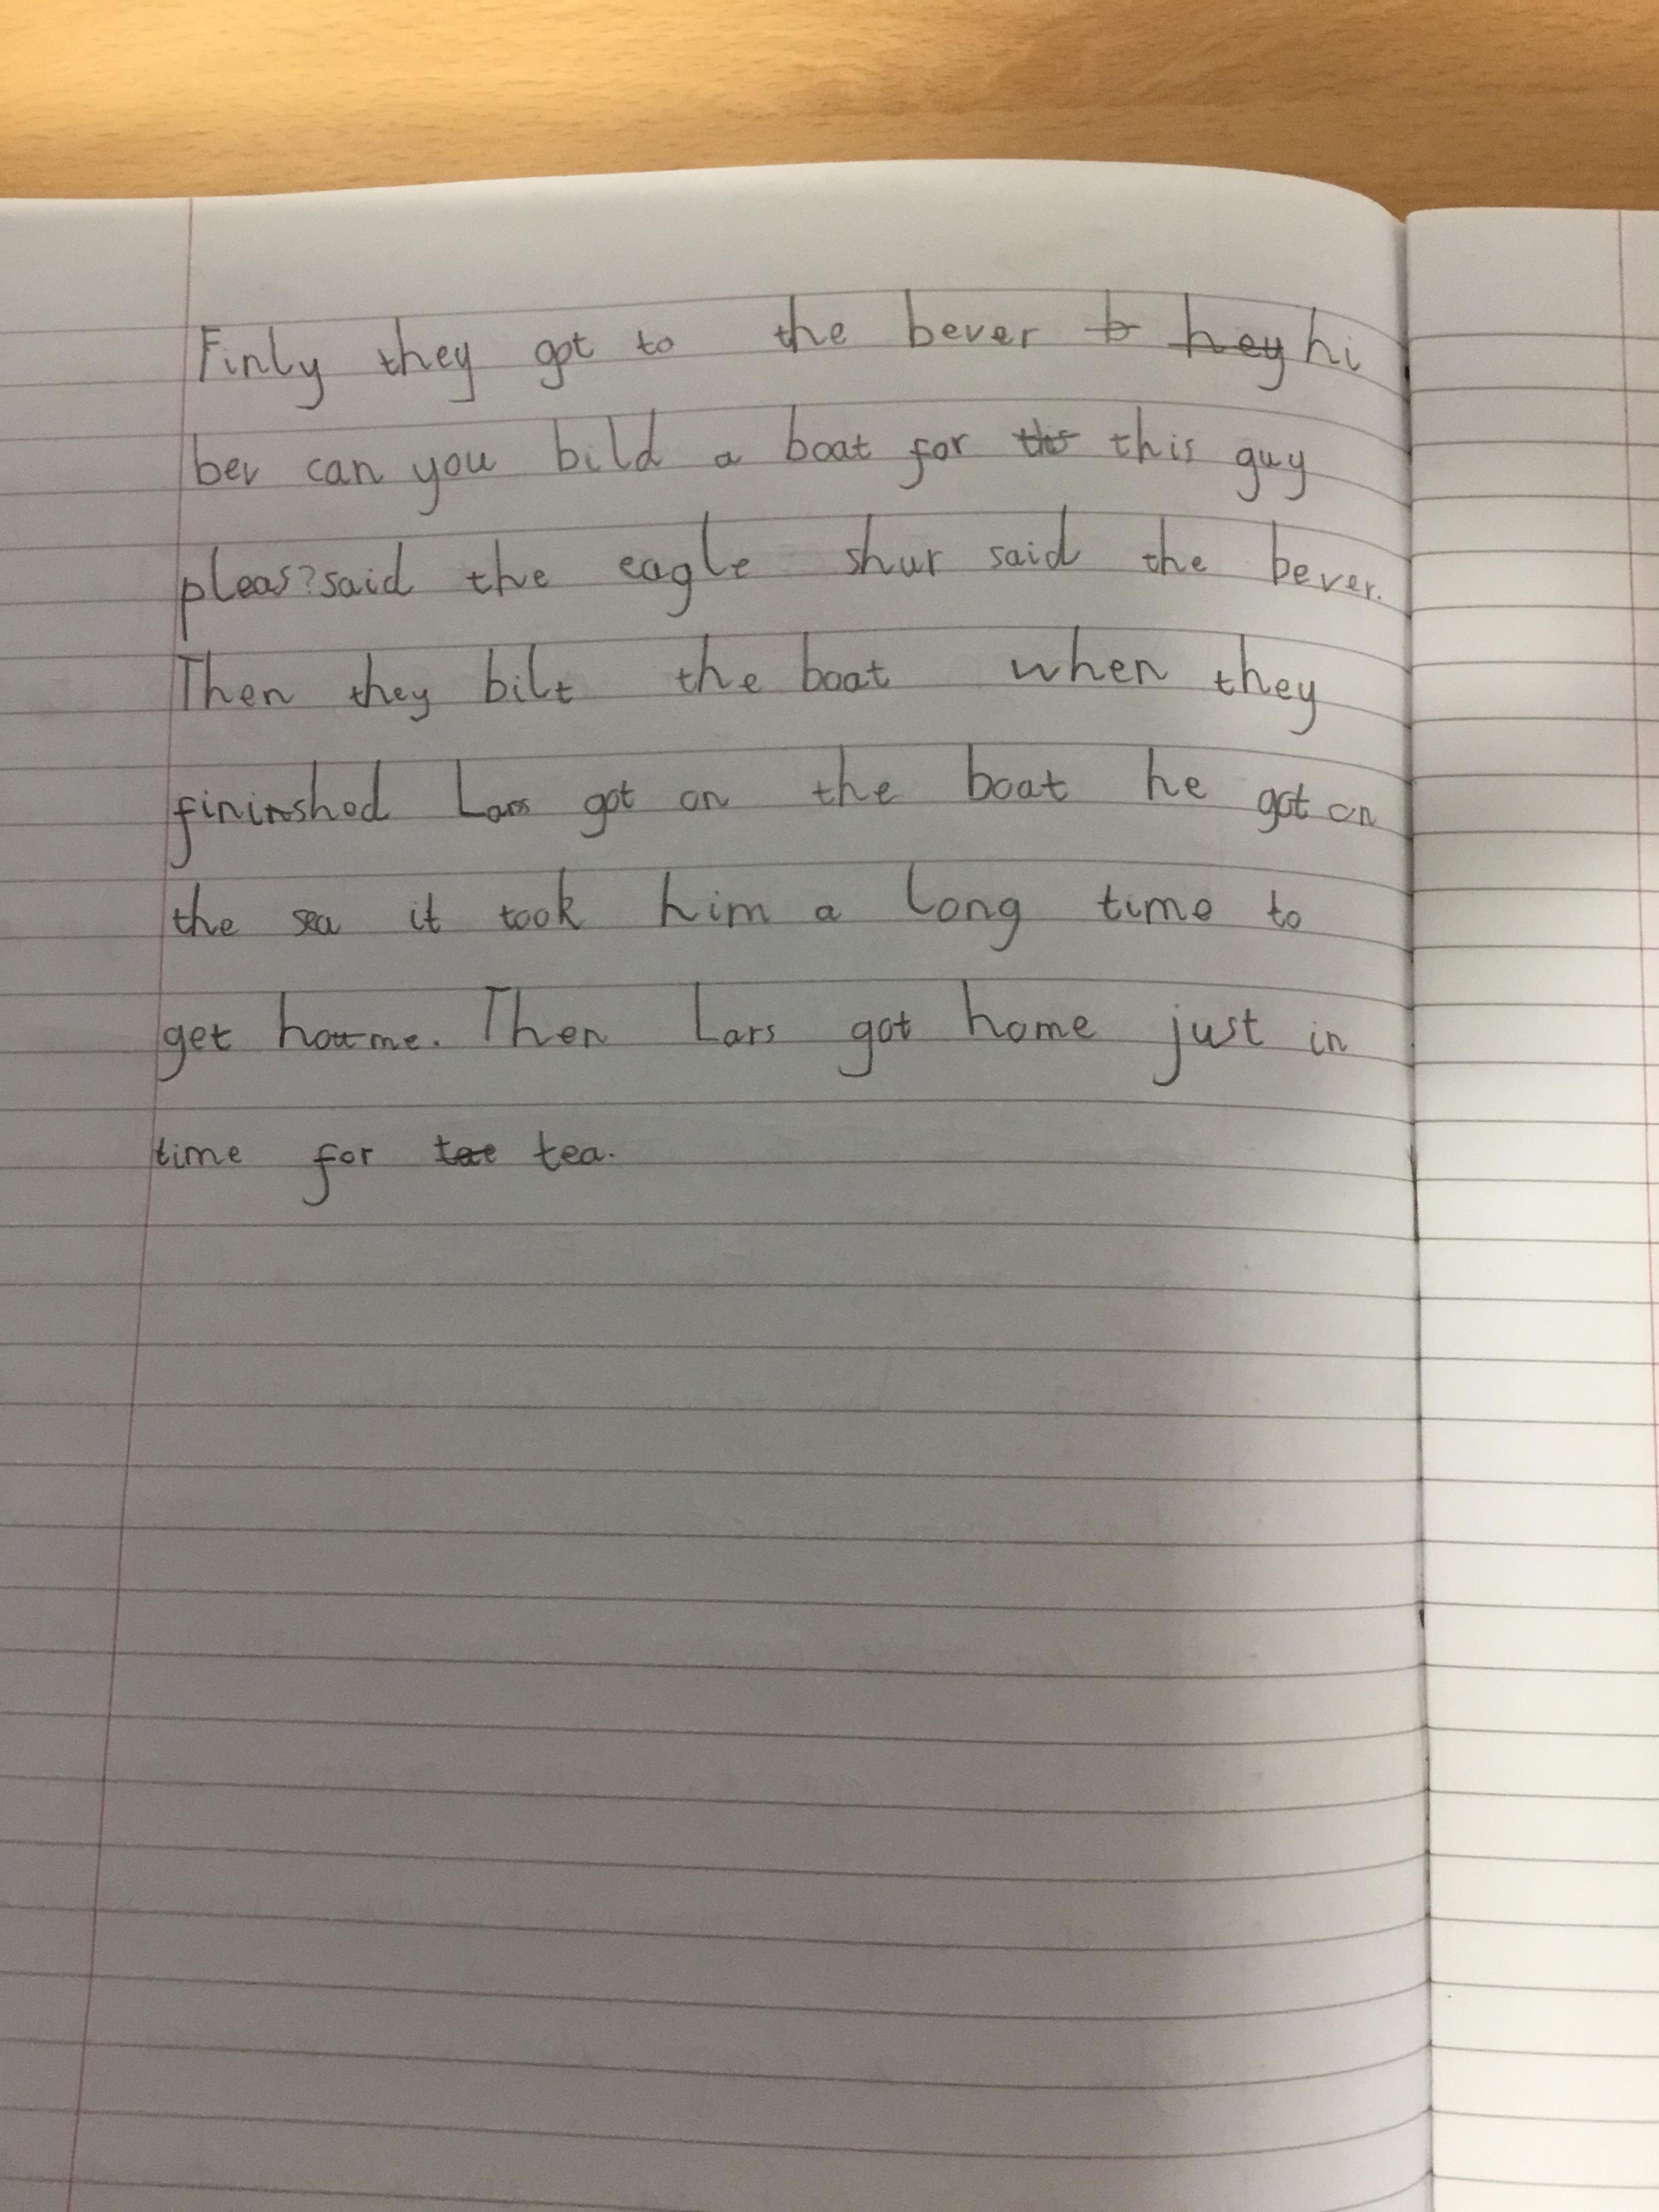 Finly they got to the bever hi
bev can you bild a boat for this guy
pleas? said the eagle shur said the bever.
Then they bilt the boat when they
finished Lars got on the boat he got on
the sea it took him a long time to
get home. Then Lars got home just in
time for tea.